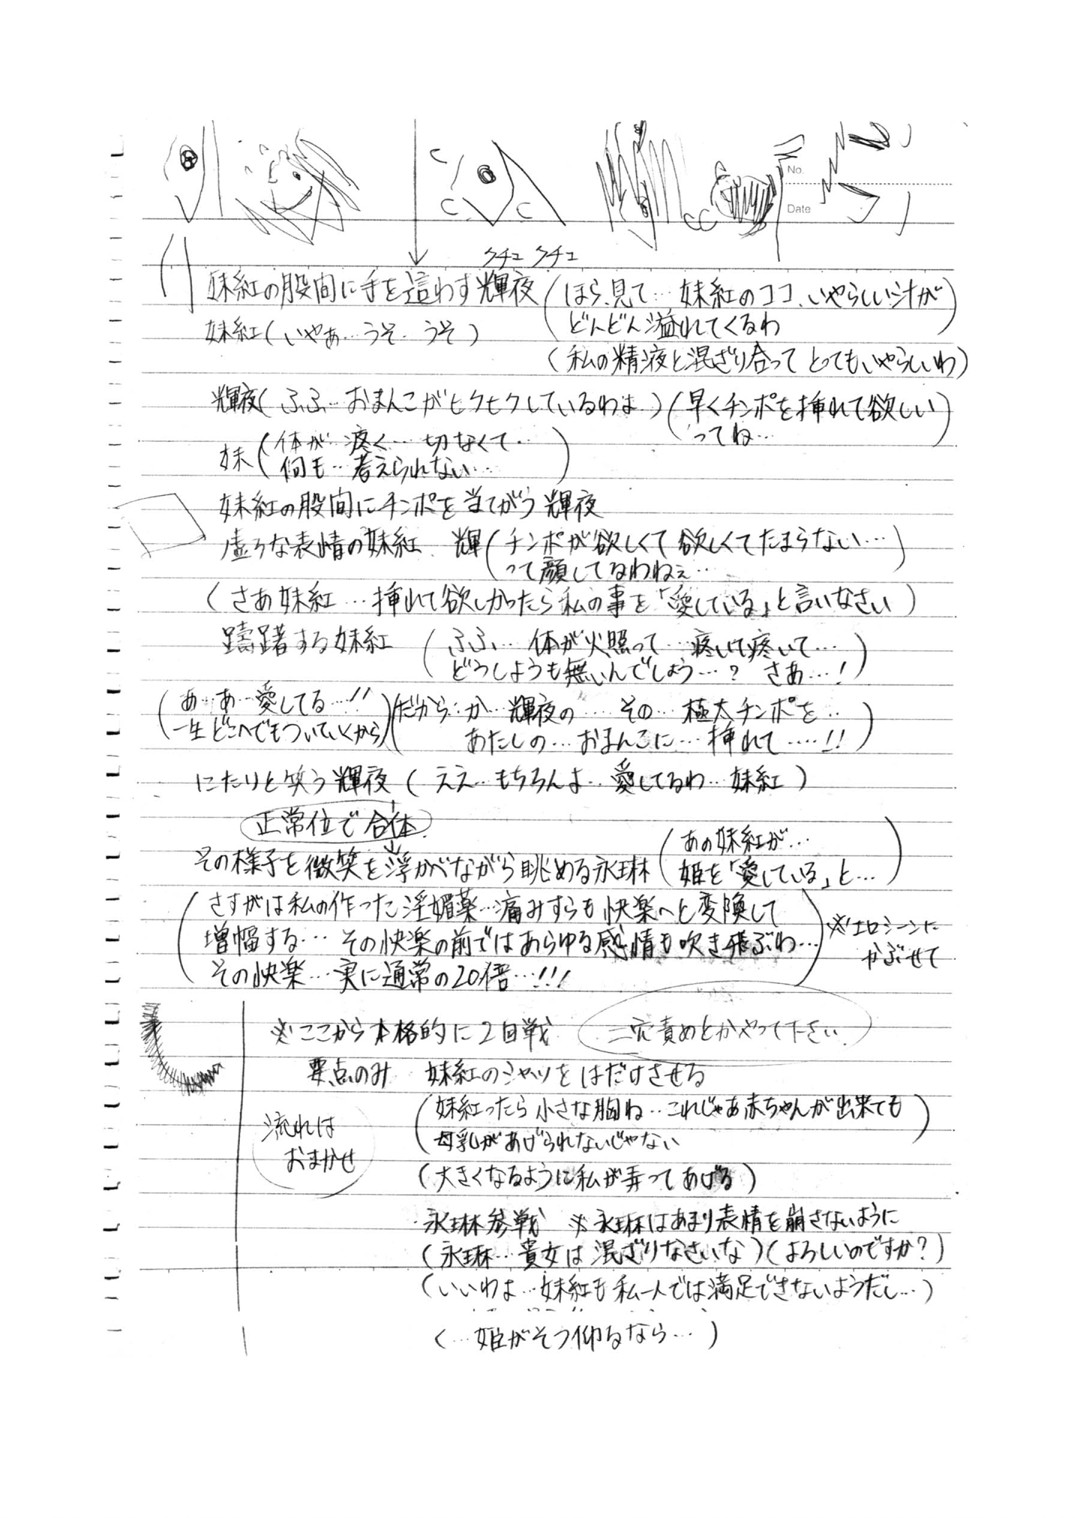 No.
Date
クチュ クチュ
妹紅の股間に手を這わす輝夜 (ほら、見て…妹紅のココ、いやらしい汁が
どんどん溢れてくるわ)
妹紅(いやぁ…うそ…うそ)
(私の精液と混ざり合って とってもいやらしいわ)
輝夜(ふふ…おまんこがヒクヒクしているわよ)(早くチンポを挿れて欲しい
ってね…)
妹(体が…疼く…切なくて…
何も…考えられない…)
妹紅の股間にチンポを当てがう輝夜
虚ろな表情の妹紅 輝(チンポが欲しくて欲しくてたまらない…
って顔してるわねぇ…)
(さあ妹紅…挿れて欲しかったら私の事を「愛している」と言いなさい)
躊躇する妹紅 (ふふ…体が火照って…疼いて疼いて…
どうしようも無いんでしょう…? さあ…!)
(あ…あ…愛してる…!!
一生どこへでもついていくから)
(だから…か…輝夜の…その…極太チンポを…
あたしの…おまんこに…挿れて……!!)
にたりと笑う輝夜 (ええ…もちろんよ…愛してるわ…妹紅)
正常位で合体
その様子を微笑を浮かべながら眺める永琳 (あの妹紅が…
姫を「愛している」と…)
(さすがは私の作った淫媚薬…痛みすらも快楽へと変換して
増幅する…その快楽の前ではあらゆる感情も吹き飛ぶわ…
その快楽…実に通常の20倍…!!!)
※エロシーンに
かぶせて
※ここから本格的に2回戦 三穴責めとかやって下さい
要点のみ 妹紅のシャツをはだけさせる
流れは
おまかせ
(妹紅ったら小さな胸ね…これじゃあ赤ちゃんが出来ても
母乳があげられないじゃない)
(大きくなるように私が弄ってあげる)
永琳参戦 ※永琳はあまり表情を崩さないように
(永琳…貴女は混ざりなさいな)(よろしいのですか?)
(いいわよ…妹紅も私一人では満足できないようだし…)
(…姫がそう仰るなら…)